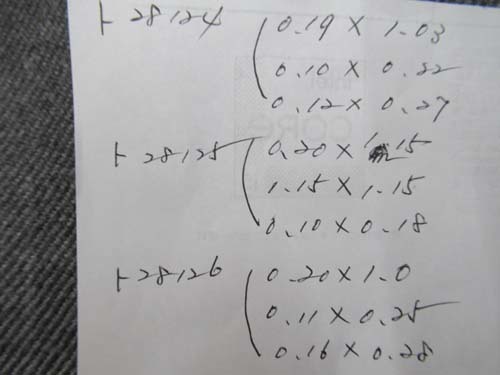 ト28124 0.19 × 1.03
0.10 × 0.22
0.12 × 0.27
ト28125 0.20 × 1.15
1.15 × 1.15
0.10 × 0.18
ト28126 0.20 × 1.0
0.11 × 0.25
0.16 × 0.28
intel
CORE